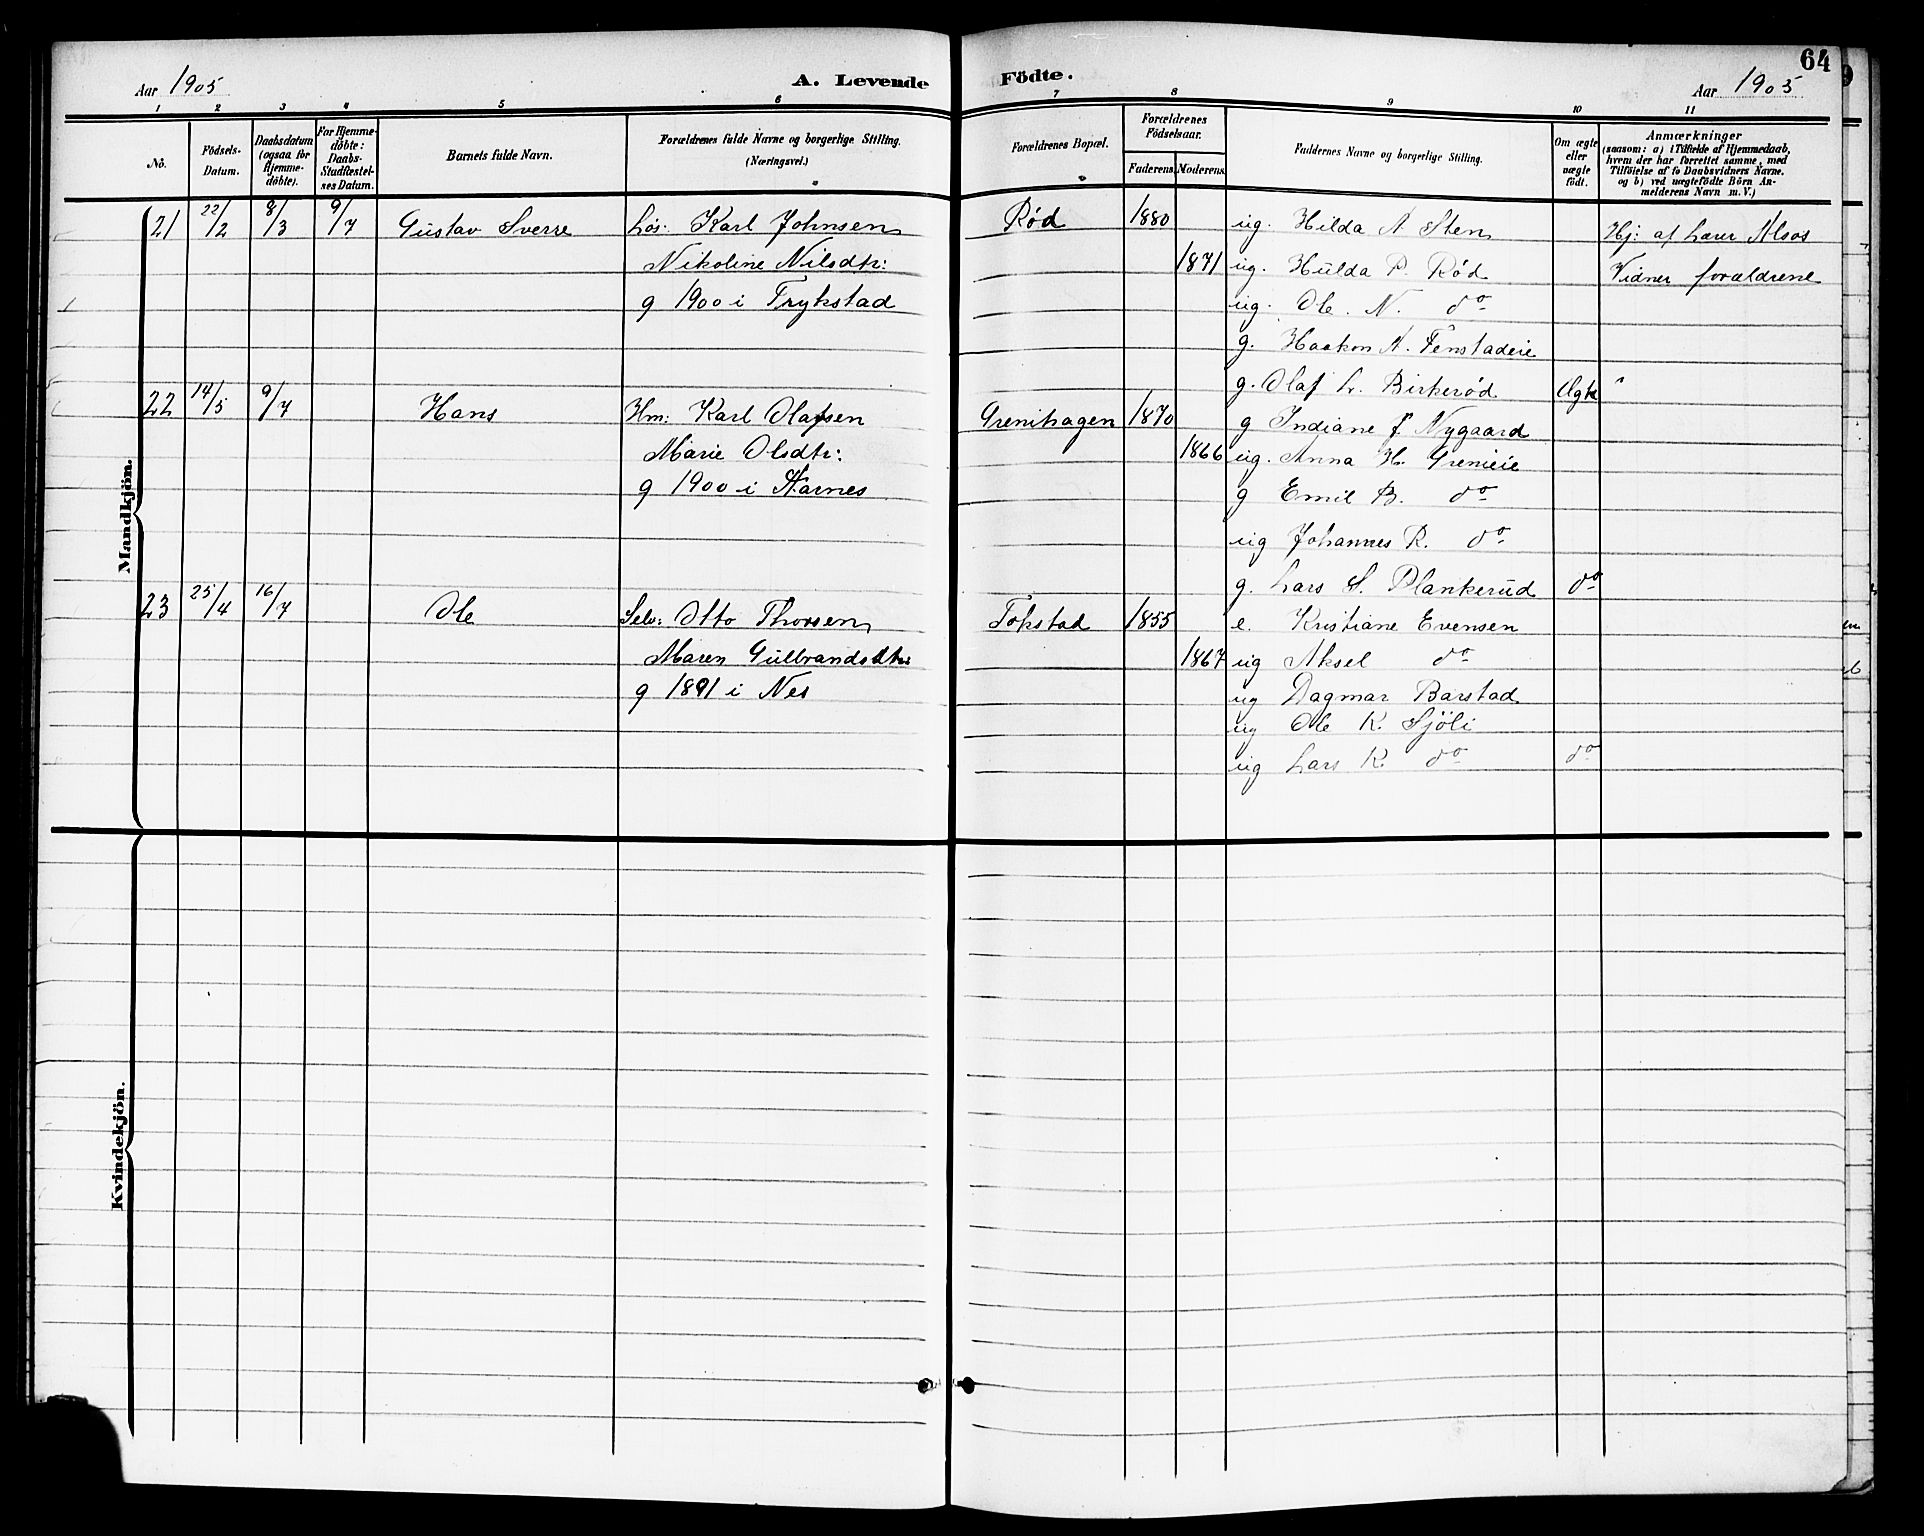 64
Aar 1905
A. Levende Födte.
Aar 1905
1 2 3 4 5 6 7 8 9 10 11
Nô.
Födsels-Datum.
Daabsdatum (ogsaa for Hjemme-döbte).
For Hjemme-döbte: Daabs-Stadfæstel-ses Datum.
Barnets fulde Navn.
Forældrenes fulde Navne og borgerlige Stilling. (Næringsvei.)
Forældrenes Bopæl.
Forældrenes Födselsaar.
Faderens Moderens
Faddernes Navne og borgerlige Stilling.
Om ægte eller uægte födt.
Anmærkninger
(saasom: a) i Tilfælde af Hjemmedaab,
hvem der har forrettet samme, med
Tilföielse af to Daabsvidners Navne.
og b) ved uægtefödte Börn An-
melderens Navn m. V.)
Mandkjön.
21 22/2 8/3 9/7 Gustav Sverre Løs: Karl Johnsen Rød 1880 ug. Hilda A Sten Hj: af Lærer Alsos
Nikoline Nilsdtr: 1871 ug. Hulda P. Rød Vidner forældrene
g 1900 i Trykstad ug. Ole. N. do
g. Haakon A. Fenstadeie
g. Olaf L. Birkerød Ægte "
22 14/5 9/7 Hans Hm: Karl Olafsen Grenihagen 1870 g Indiane J. Nygaard
Marie Olsdtr: 1866 ug. Anna H. Grenieie
g 1900 i Aarnes g Emil B. do
ug Johannes R. do
g. Lars S. Plankerud do
23 25/4 16/7 Ole Selv: Otto Thorsen Tokstad 1855 e. Kristiane Evensen
Maren Gulbrandsdtr: 1867 ug Aksel do
g 1891 i Nes ug Dagmar Barstad
ug Ole K. Sjöli
ug Lars K do do
Kvindekjön.